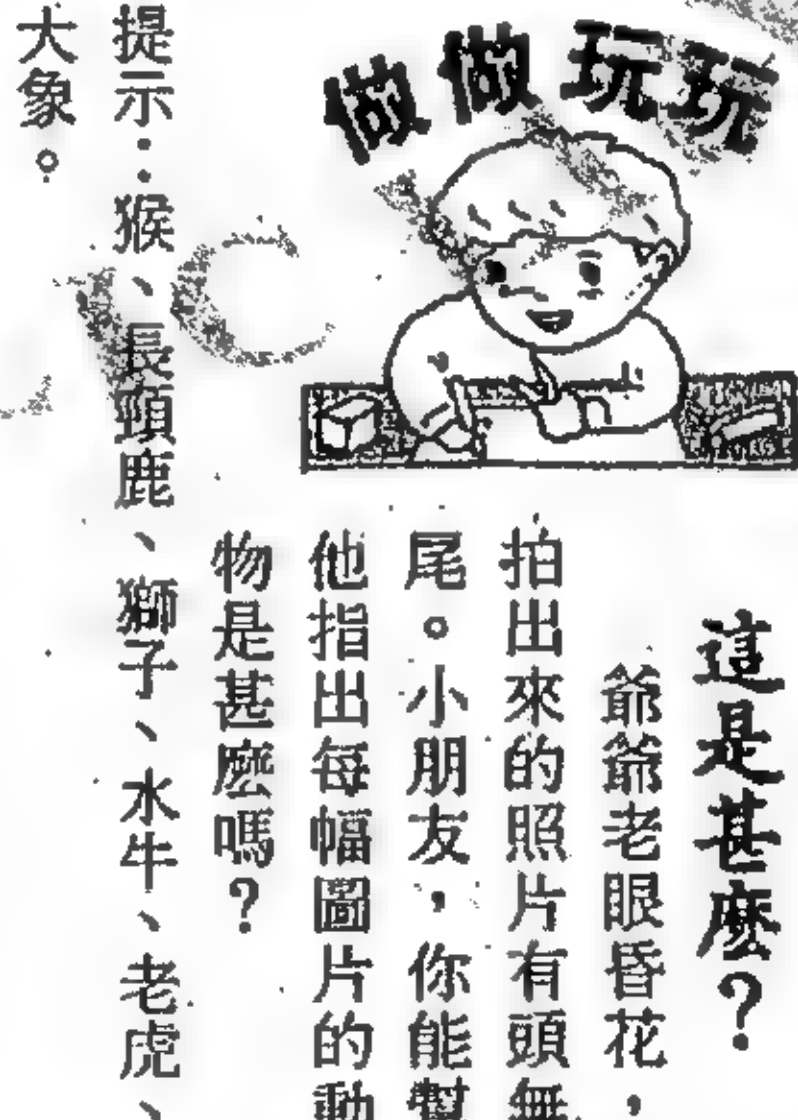 做做玩玩
這是甚麼？
爺爺老眼昏花，
拍出來的照片有頭無
尾。小朋友，你能幫
他指出每幅圖片的動
物是甚麼嗎？
提示：猴、長頸鹿、獅子、水牛、老虎、
大象。